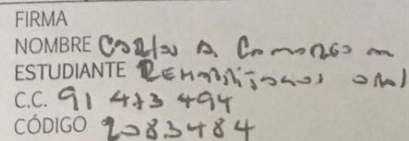 FIRMA
NOMBRE Carlos A. Camargo m
ESTUDIANTE
C.C. 91 473 494
CÓDIGO 2083484